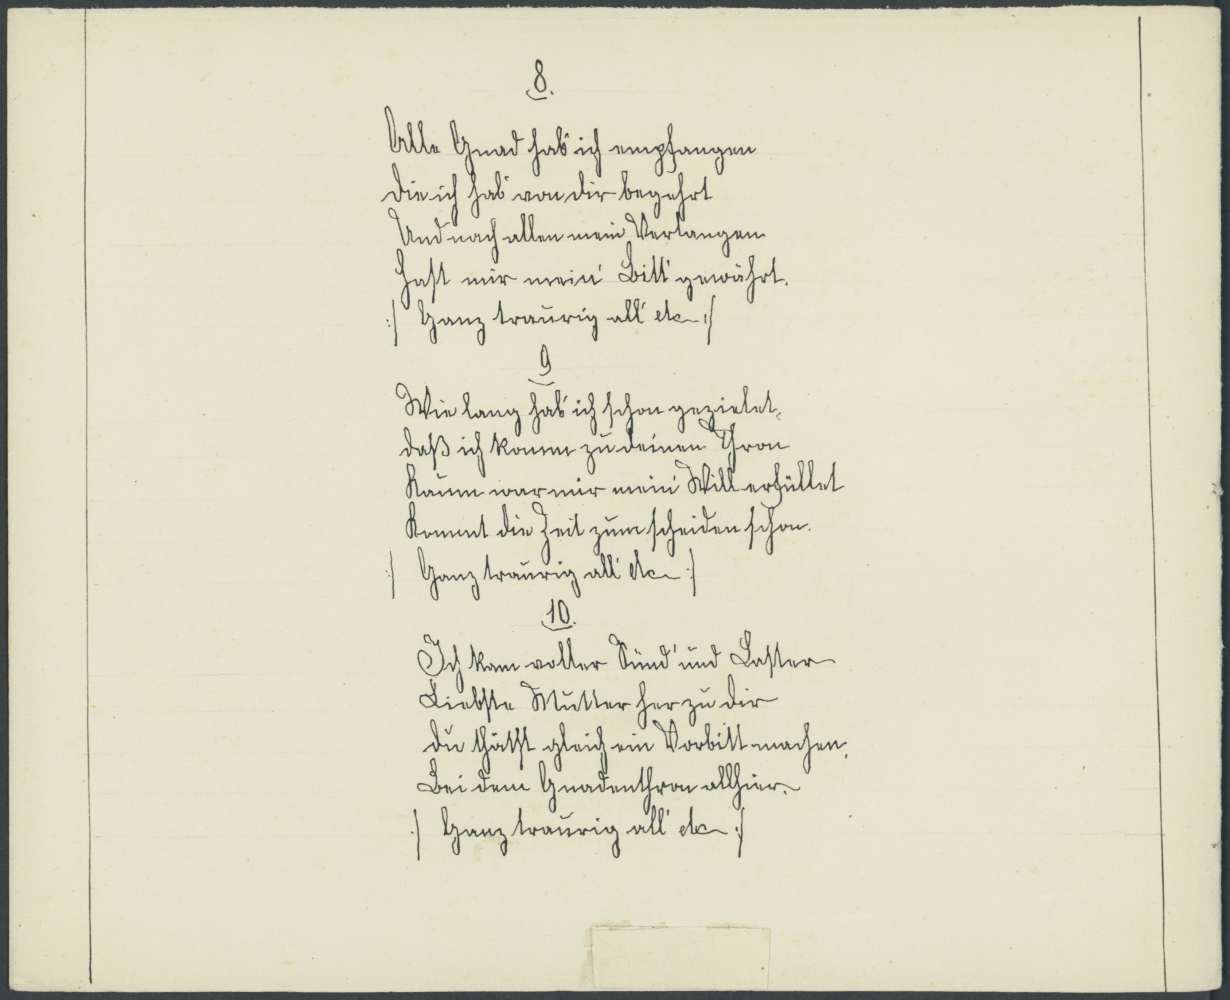 8.
Alle Gnad hab' ich empfangen
die ich hab' von dir begehrt
Und nach allen mein Verlangen
hast mir mein' Bitt' gewährt.
:/ Ganz traurig all' etc :/
9
Wie lang hab' ich schon gezielet,
daß ich komm zu deinen Thron
Kaum war mir mein' Will erfüllet
Kommt die Zeit zum scheiden schon.
:/ Ganz traurig all' etc :/
10.
Ich kam voller Sünd' und Laster
Liebste Mutter her zu dir
du thätst gleich ein Vorbitt machen,
Bei dem Gnadenthron allhier.
:/ Ganz traurig all' etc :/